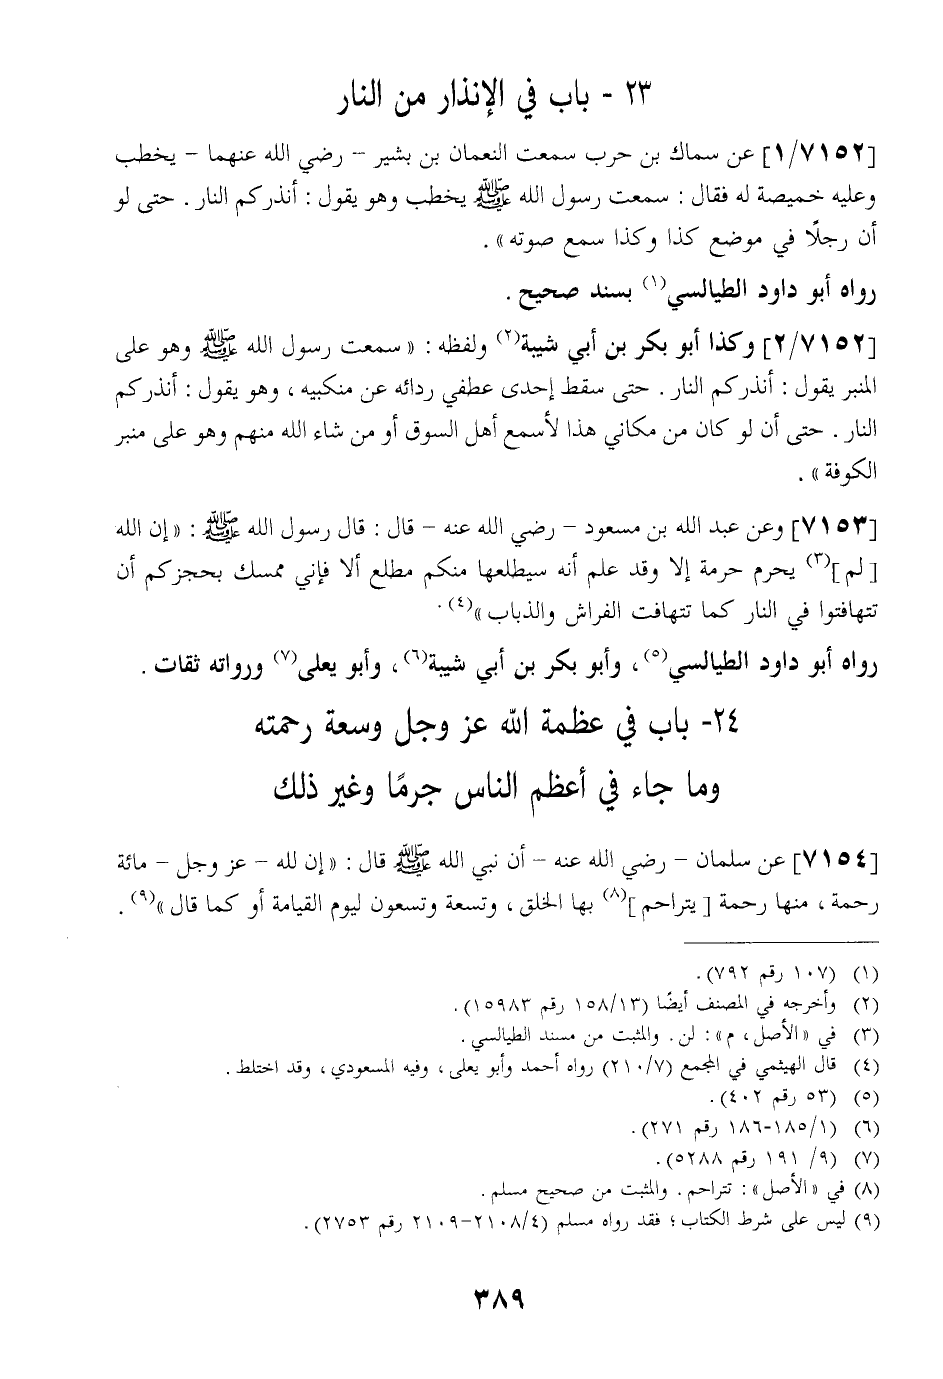 ٢٣ - باب في الإنذار من النار
[١/٧١٥٢] عن سماك بن حرب سمعت النعمان بن بشير – رضي الله عنهما – يخطب
وعليه خميصة له فقال : سمعت رسول الله ﷺ يخطب وهو يقول : أنذركم النار . حتى لو
أن رجلًا في موضع كذا وكذا سمع صوته» .
رواه أبو داود الطيالسي(١) بسند صحيح .
[٢/٧١٥٢] وكذا أبو بكر بن أبي شيبة(٢) ولفظه : «سمعت رسول الله ﷺ وهو على
المنبر يقول : أنذركم النار . حتى سقط إحدى عطفي ردائه عن منكبيه ، وهو يقول : أنذركم
النار . حتى أن لو كان من مكاني هذا لأسمع أهل السوق أو من شاء الله منهم وهو على منبر
الكوفة» .
[٧١٥٣] وعن عبد الله بن مسعود – رضي الله عنه – قال : قال رسول الله ﷺ : «إن الله
[لم](٣) يحرم حرمة إلا وقد علم أنه سيطلعها منكم مطلع ألا فإني ممسك بحجزكم أن
تتهافتوا في النار كما تتهافت الفراش والذباب»(٤) .
رواه أبو داود الطيالسي(٥) ، وأبو بكر بن أبي شيبة(٦) ، وأبو يعلى(٧) ورواته ثقات .
٢٤- باب في عظمة الله عز وجل وسعة رحمته
وما جاء في أعظم الناس جرمًا وغير ذلك
[٧١٥٤] عن سلمان – رضي الله عنه – أن نبي الله ﷺ قال : «إن لله – عز وجل – مائة
رحمة ، منها رحمة [يتراحم](٨) بها الخلق ، وتسعة وتسعون ليوم القيامة أو كما قال»(٩) .
(١) (١٠٧ رقم ٧٩٢) .
(٢) وأخرجه في المصنف أيضًا (١٥٨/١٣ رقم ١٥٩٨٣) .
(٣) في «الأصل ، م» : لن . والمثبت من مسند الطيالسي .
(٤) قال الهيثمي في المجمع (٢١٠/٧) رواه أحمد وأبو يعلى ، وفيه المسعودي ، وقد اختلط .
(٥) (٥٣ رقم ٤٠٢) .
(٦) (١٨٥/١-١٨٦ رقم ٢٧١) .
(٧) (٩/ ١٩١ رقم ٥٢٨٨) .
(٨) في «الأصل» : تتراحم . والمثبت من صحيح مسلم .
(٩) ليس على شرط الكتاب ؛ فقد رواه مسلم (٢١٠٨/٤-٢١٠٩ رقم ٢٧٥٣) .
٣٨٩